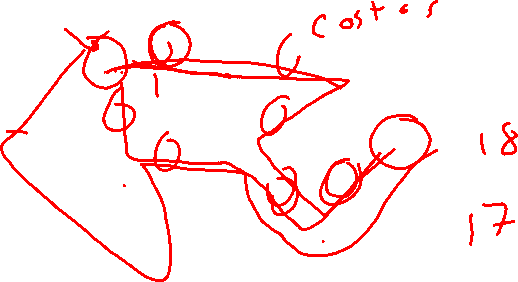 costos
18
17